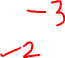 -3
-2